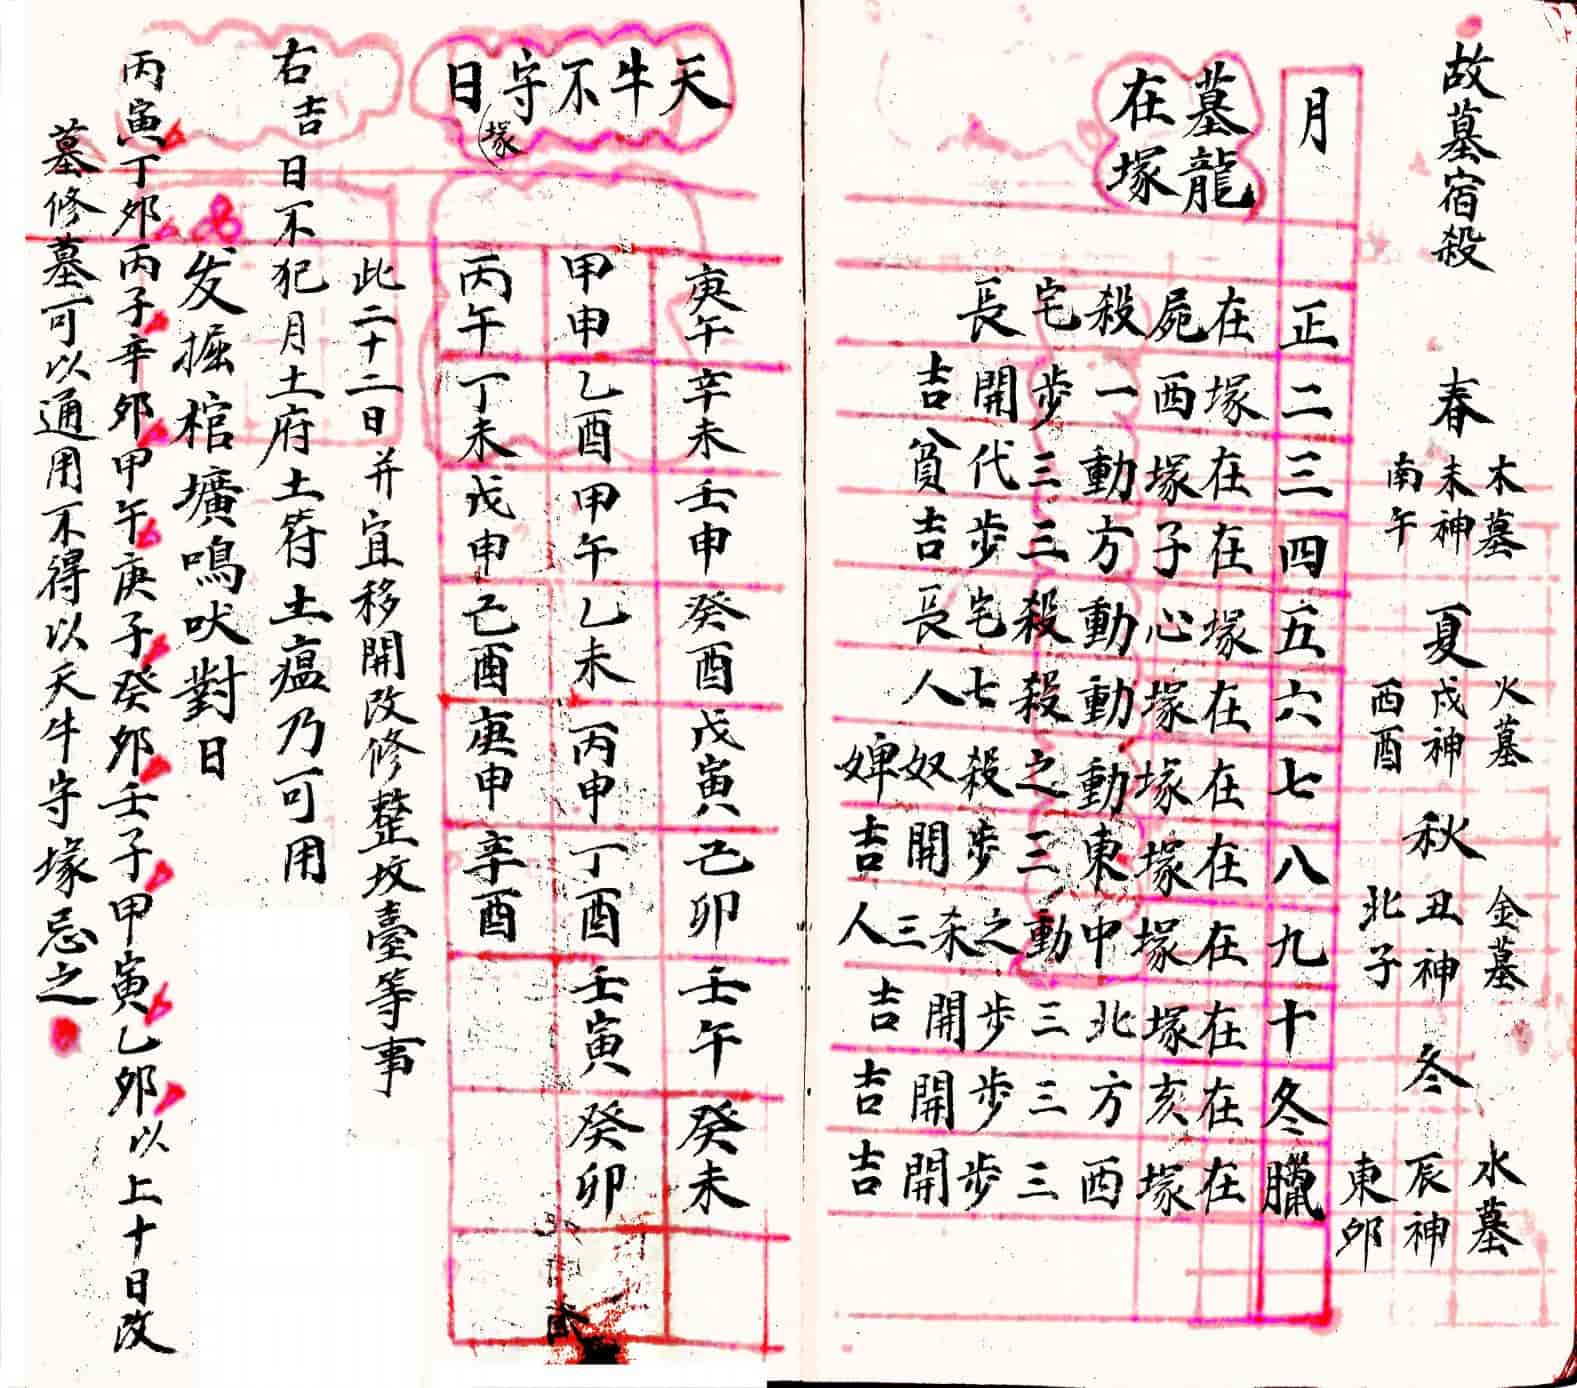 故墓宿殺
春
木墓
未神
南午
夏
火墓
戌神
西酉
秋
金墓
丑神
北子
冬
水墓
辰神
東卯
月
墓龍
在塚
正 在屍殺宅長
二 塚西一步開吉
三 在塚動三代貧
四 在子方三步吉
五 塚心動殺宅長
六 在塚動殺七人
七 在塚動之殺奴婢
八 在塚東三步開吉
九 在塚中動之杀三人
十 在塚北三步開吉
冬 在亥方三步開吉
臘 在塚西三步開吉
天牛不守塚日
庚午 辛未 壬申 癸酉 戊寅 己卯 壬午 癸未
甲申 乙酉 甲午 乙未 丙申 丁酉 壬寅 癸卯
丙午 丁未 戊申 己酉 庚申 辛酉
此二十二日并宜移開改修整坟臺等事
右吉日不犯月土府土符土瘟乃可用
发掘棺壙鳴吠對日
丙寅丁卯丙子辛卯甲午庚子癸卯壬子甲寅乙卯以上十日改
墓修墓可以通用不得以天牛守塚忌之